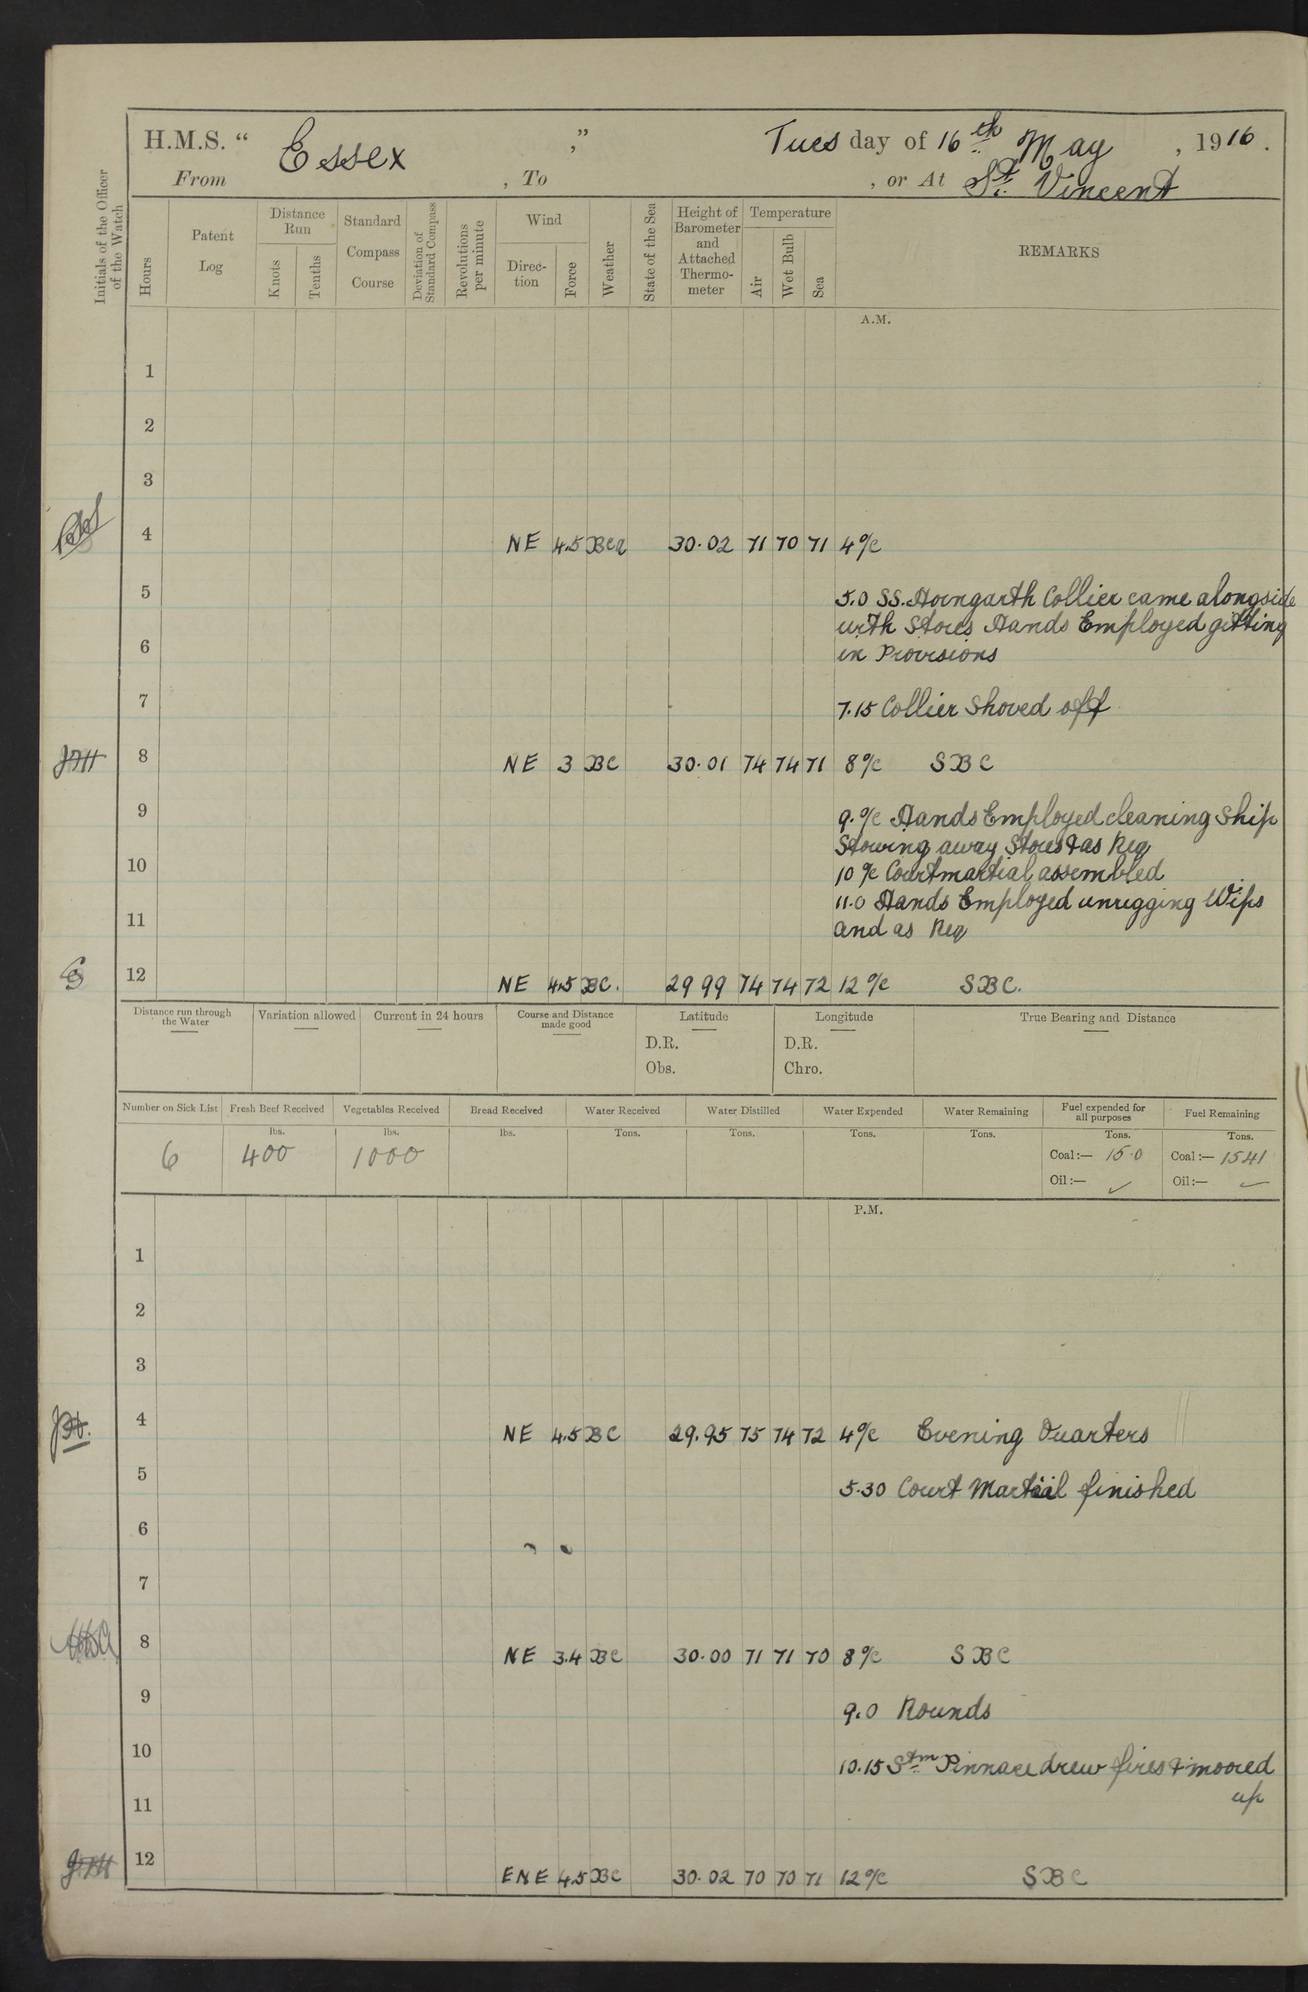 H.M.S. “ Essex ,” Tues day of 16th May , 1916 .
From , To , or At St. Vincent
Initials of the Officer of the Watch
Hours
Patent Log
Distance Run
Knots
Tenths
Standard Compass Course
Deviation of Standard Compass
Revolutions per minute
Wind
Direc- tion
Force
Weather
State of the Sea
Height of Barometer and Attached Thermo- meter
Temperature
Air
Wet Bulb
Sea
REMARKS
A.M.
1
2
3
4 NE 4.5 30.02 71 70 71 4 o/c
5 5.0 SS. Horngarth Collier came alongside
with Stores Hands Employed getting
6 in Provisions
7 7.15 Collier Shoved off
8 NE 3 BC 30.01 74 74 71 8 o/c SBC
9 9. o/c Hands Employed cleaning Ship
Stowing away Stores & as Req
10 10 o/c Courtmartial assembled
11.0 Hands Employed unrigging Wips
11 and as Req
12 NE 4.5 BC. 29 99 74 74 72 12 o/c SBC.
Distance run through the Water
Variation allowed
Current in 24 hours
Course and Distance made good
Latitude
D.R.
Obs.
Longitude
D.R.
Chro.
True Bearing and Distance
Number on Sick List
Fresh Beef Received
Vegetables Received
Bread Received
Water Received
Water Distilled
Water Expended
Water Remaining
Fuel expended for all purposes
Fuel Remaining
lbs. lbs. lbs. Tons. Tons. Tons. Tons. Tons. Tons.
6 400 1000 Coal :— 15.0 Coal :— 1541
Oil :— ✓ Oil :— ✓
P.M.
1
2
3
4 NE 4.5 BC 29.95 75 74 72 4 o/c Evening Quarters
5 5.30 Court Martial finished
6
7
8 NE 3.4 BC 30.00 71 71 70 8 o/c SBC
9 9.0 Rounds
10 10.15 Stm Pinnace drew fires & moored
11 up
12 ENE 4.5 BC 30.02 70 70 71 12 o/c SBC